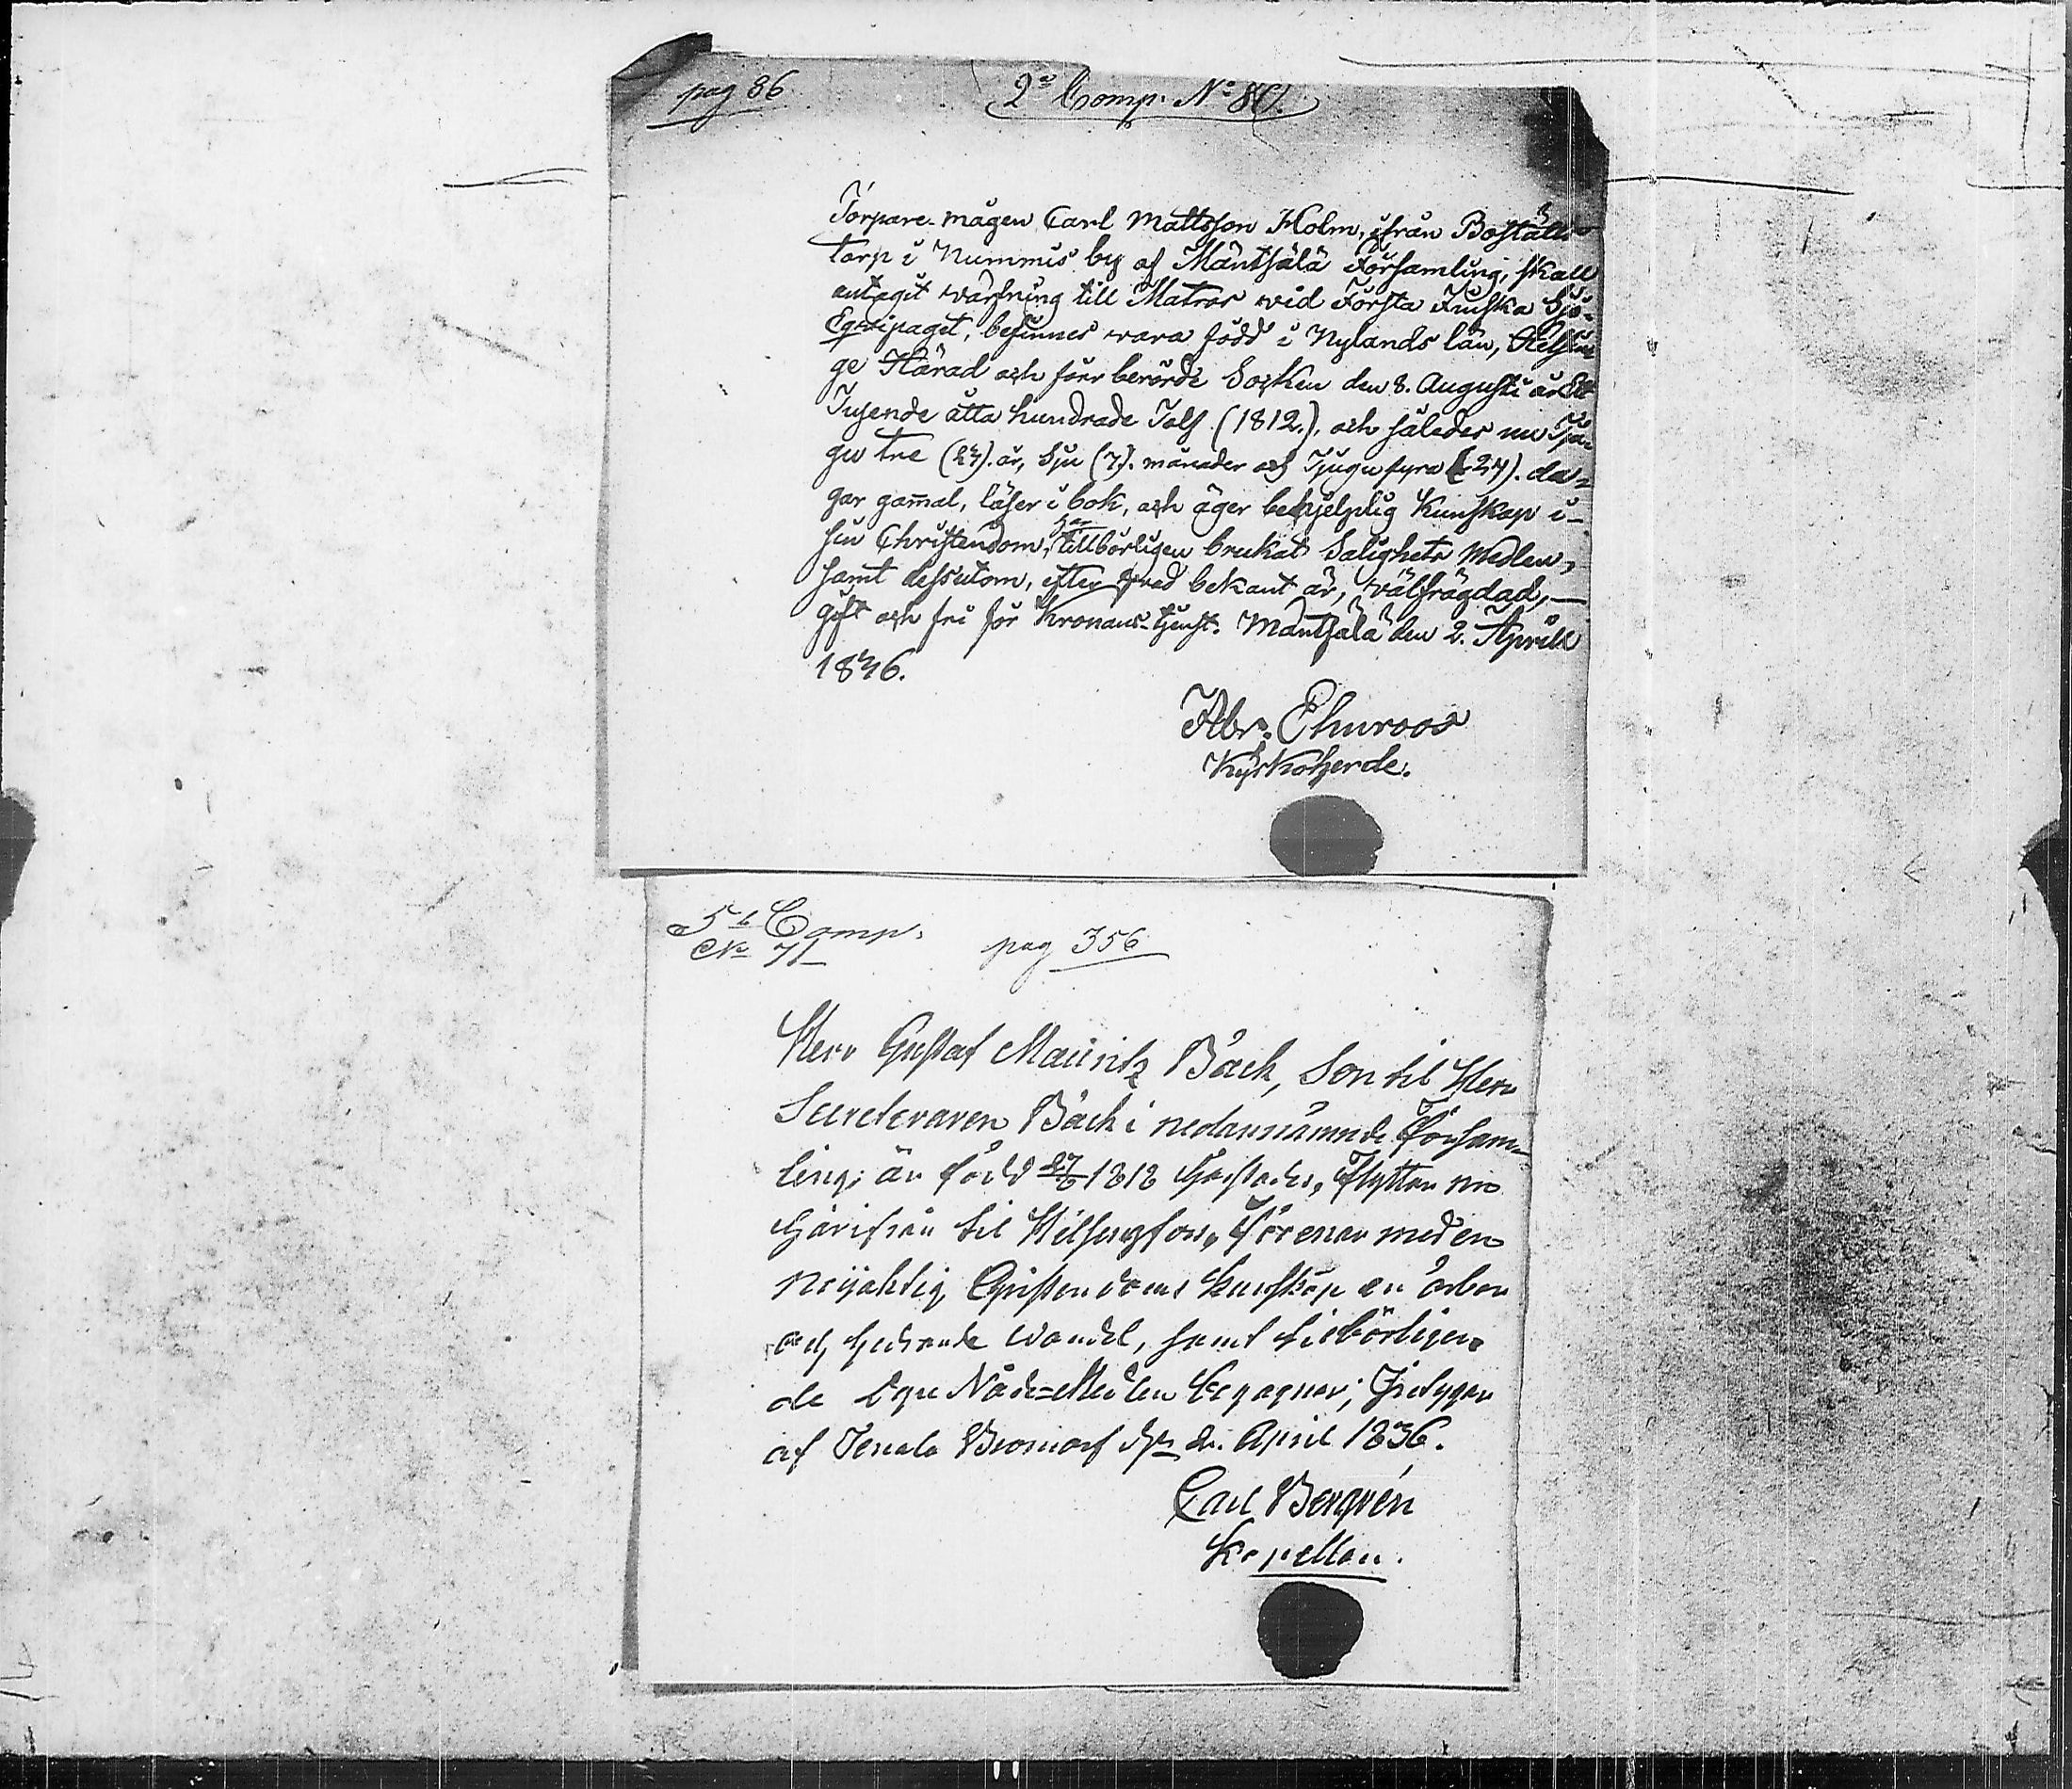 pag 86
2a Comp. No 80.
Torpare-mågen Carl Mattsson Holm, ifrån Boställs
torp i Nummis by af Mäntsälä Församling, skall
antagit värfning till Matros wid Första Finska Sjö-
Eqvipaget, befinnes wara född i Nylands län, Helsin
ge Härad och förr berörde Socken den 8. Augusti år Ett
Tusende åtta hundrade Tolf (1812.), och således nu Tju-
gu tre (23). år, Sju (7). månader och Tjugufyra (24). da-
gar gam̄al, läser i bok, och äger behjelplig Kunskap i
sin Christendom, har tillbörligen brukat Salighets Medlen,
samt dessutom, efter hvad bekant är, välfrägdad,
gift och fri för Kronans-tjenst. Mäntsälä den 2. Aprill
1836.
Abr. Ehnroos
Kyrkoherde.
5te Comp.
No 71
pag 356
Herr Gustaf Mauritz Bäck, Son til Herr
Secreteraren Bäck i nedannämnde Försam-
ling; är född 27/8 1818 härstädes, flyttar nu
härifrån til Helsingfors, förenar med en
nöjaktig Christendoms kunskap en ärbar
och hedrande wandel, samt tilbörligen
de dyre Nåde-Medlen begagnar; betygar
af Tenala Bromarf d. April 1836.
Carl Bergrén
Kapellan.